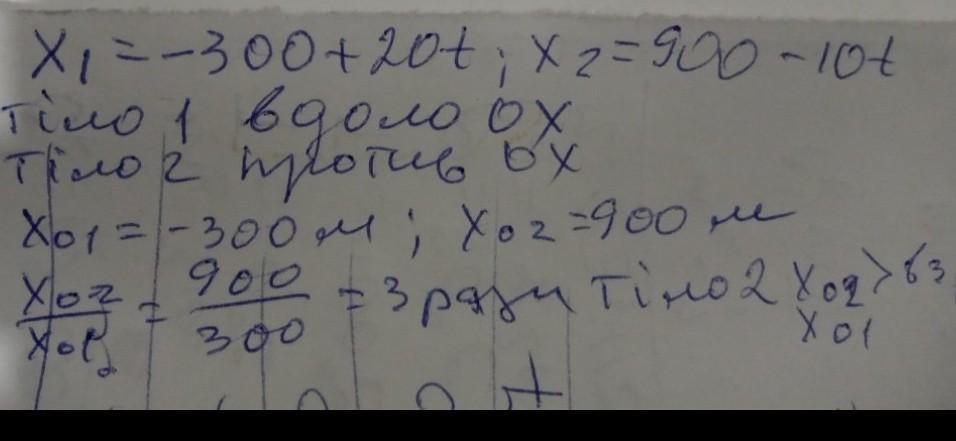 x₁ = -300 + 20t; x₂ = 900 - 10t
тіло 1 вдоло ОХ
тіло 2 против ОХ
x₀₁ = -300 м; x₀₂ = 900 м
x₀₂/x₀₁ = 900/300 = 3 рази тіло 2 x₀₂ > в 3
x₀₁